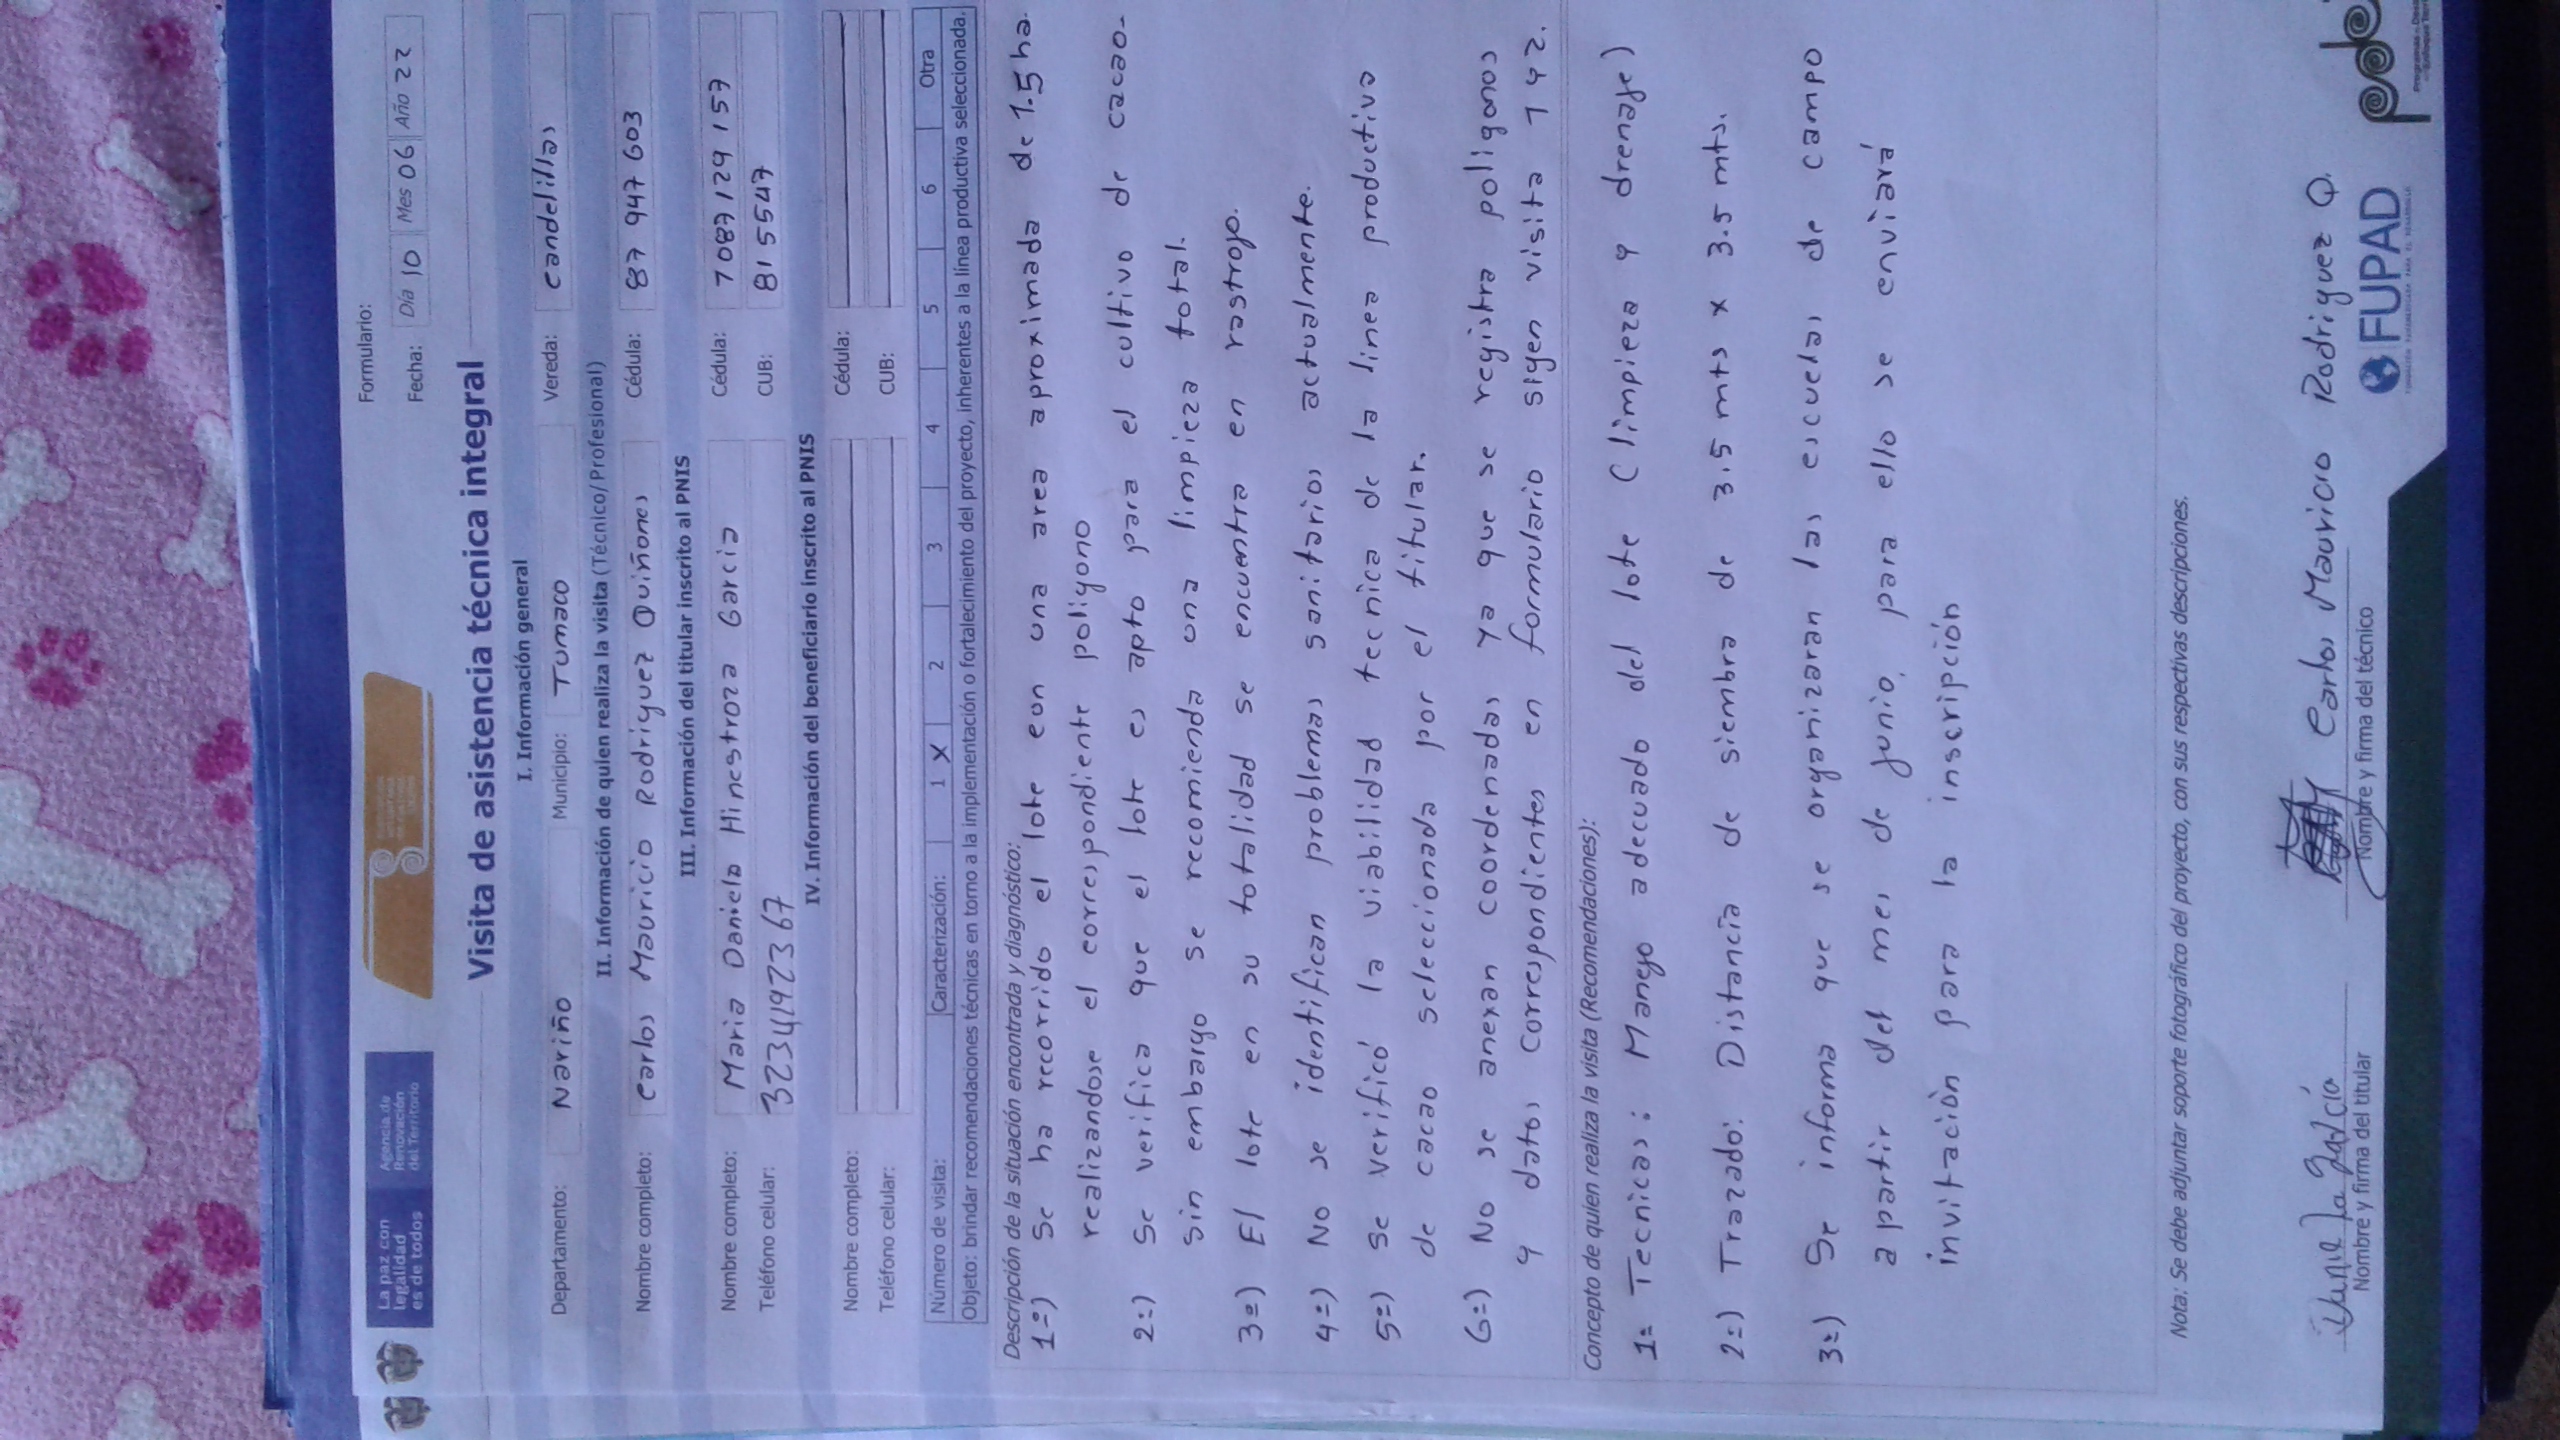 La paz con
legalidad
es de todos
Agencia de
Renovación
del Territorio
Formulario:
Fecha: Día 10 Mes 06 Año 22
Visita de asistencia técnica integral
I. Información general
Departamento: Nariño Municipio: Tumaco Vereda: Candelillas
II. Información de quien realiza la visita (Técnico/Profesional)
Nombre completo: Carlos Mauricio Rodriguez Quiñones Cédula: 87 947 603
III. Información del titular inscrito al PNIS
Nombre completo: Maria Daniela Hinestroza Garcia Cédula: 1087129157
Teléfono celular: 3234192367 CUB: 815547
IV. Información del beneficiario inscrito al PNIS
Nombre completo: Cédula:
Teléfono celular: CUB:
Número de visita: Caracterización: 1 X 2 3 4 5 6 Otra
Objeto: brindar recomendaciones técnicas en torno a la implementación o fortalecimiento del proyecto, inherentes a la línea productiva seleccionada.
Descripción de la situación encontrada y diagnóstico:
1=) Se ha recorrido el lote con una area aproximada de 1.5 ha.
realizandose el correspondiente poligono
2=) Se verifica que el lote es apto para el cultivo de cacao-
sin embargo se recomienda una limpieza total.
3=) El lote en su totalidad se encuentra en rastrojo.
4=) No se identifican problemas sanitarios actualmente.
5=) Se verificó la viabilidad tecnica de la linea productiva
de cacao seleccionada por el titular.
6=) No se anexan coordenadas ya que se registra poligonos
y datos correspondientes en formulario sigen visita 1 y 2.
Concepto de quien realiza la visita (Recomendaciones):
1= Tecnicas: Manejo adecuado del lote (limpieza y drenaje)
2=) Trazado: Distancia de siembra de 3.5 mts x 3.5 mts.
3=) Se informa que se organizaran las escuelas de campo
a partir del mes de junio, para ello se enviará
invitación para la inscripción
Nota: Se debe adjuntar soporte fotográfico del proyecto, con sus respectivas descripciones.
Daniela García
Carlos Mauricio Rodriguez Q.
Nombre y firma del titular
Nombre y firma del técnico
FUPAD